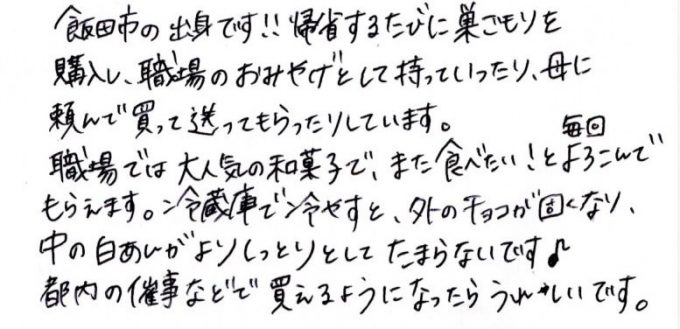 飯田市の出身です!! 帰省するたびに巣ごもりを
購入し、職場のおみやげとして持っていったり、母に
頼んで買って送ってもらったりしています。
職場では大人気の和菓子で、また食べたい！と毎回よろこんで
もらえます。冷蔵庫で冷やすと、外のチョコが固くなり、
中の白あんがよりしっとりとしてたまらないです♪
都内の催事などで買えるようになったらうれしいです。